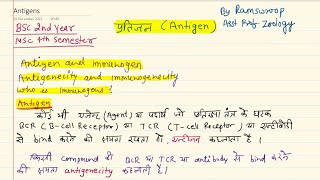 Antigens
BSc 2nd Year
MSc 4th Semester
प्रतिजन (Antigen)
By Ramswroop
Asst Prof. Zoology
Antigen and immunogen
Antigenecity and immunogeneicity
who is immunogens?
Antigen
कोई भी एजेन्ट (Agent) या पदार्थ जो प्रतिरक्षा तंत्र के घटक
BCR (B-cell Receptor) या TCR (T-cell Receptor) या एन्टीबॉडी
से bind करने की क्षमता रखता है। एन्टीजन कहलाता है।
किसी compound की BCR या TCR या antibody से bind करने
की क्षमता antigenecity कहलाती है।